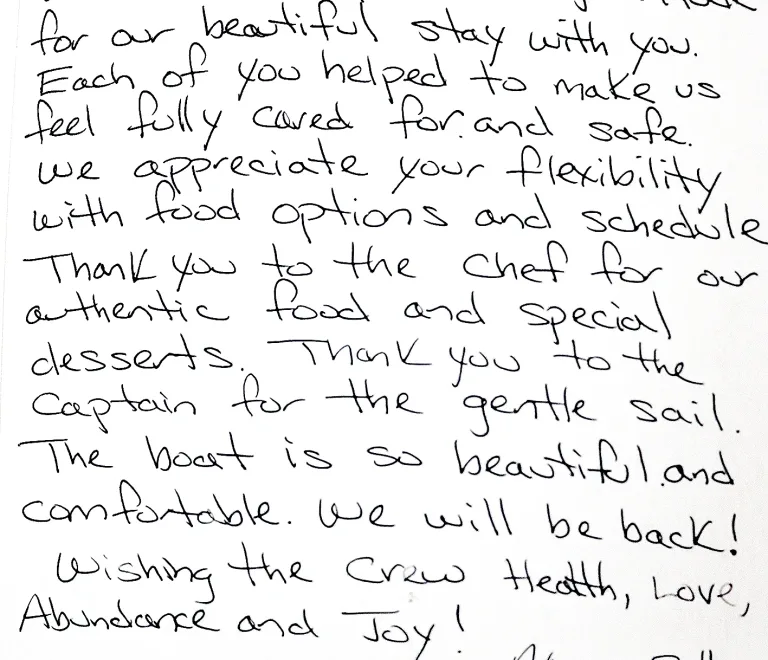 for our beautiful stay with you.
Each of you helped to make us
feel fully cared for.and safe.
We appreciate your flexibility
with food options and schedule
Thank you to the Chef for our
authentic food and special
desserts. Thank you to the
Captain for the gentle sail.
The boat is so beautiful.and
comfortable. We will be back!
Wishing the Crew Health, Love,
Abundance and Joy!